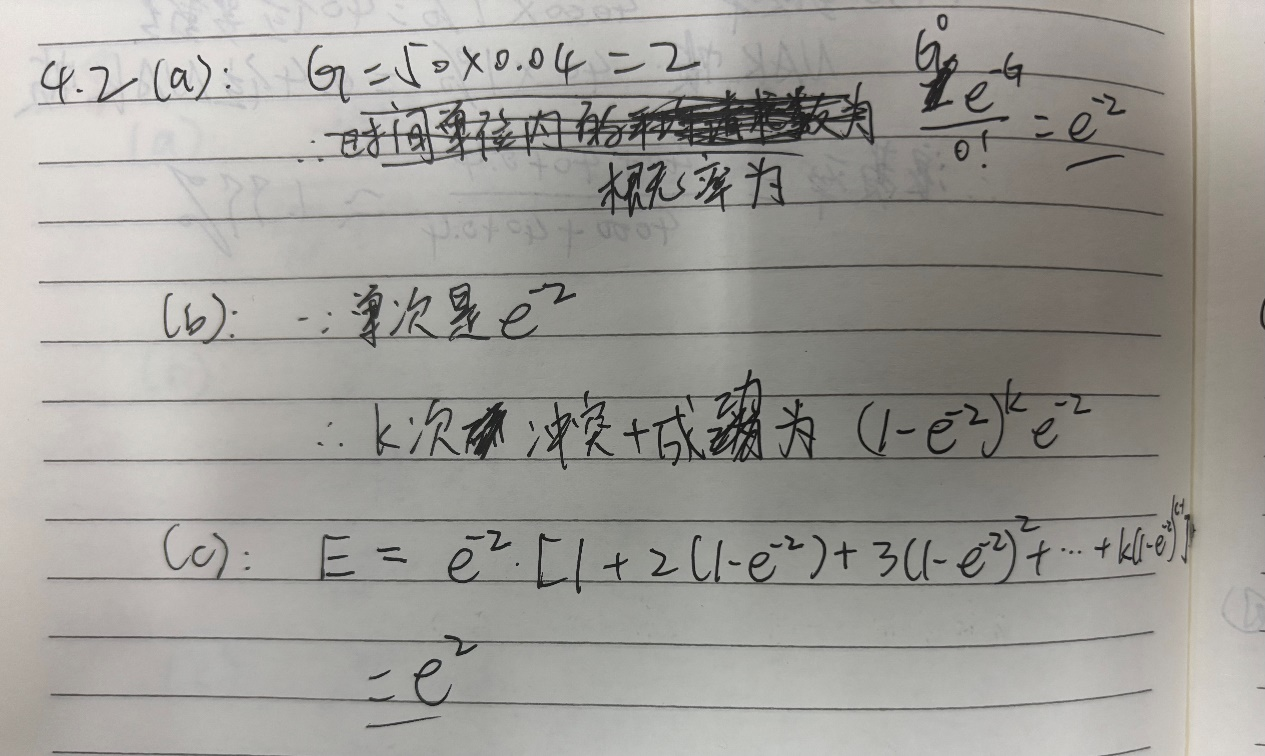 4.2 (a): G = 50×0.04 = 2
∴ 时间单位内的 数为 G⁰e^{-G}/0! = e^{-2}
概率为
(b): ∵ 单次是 e^{-2}
∴ k次 冲突+成功为 (1-e^{-2})^k e^{-2}
(c): E = e^{-2}·[1+2(1-e^{-2})+3(1-e^{-2})^2+…+k(1-e^{-2})^{k-1}]
= e^2